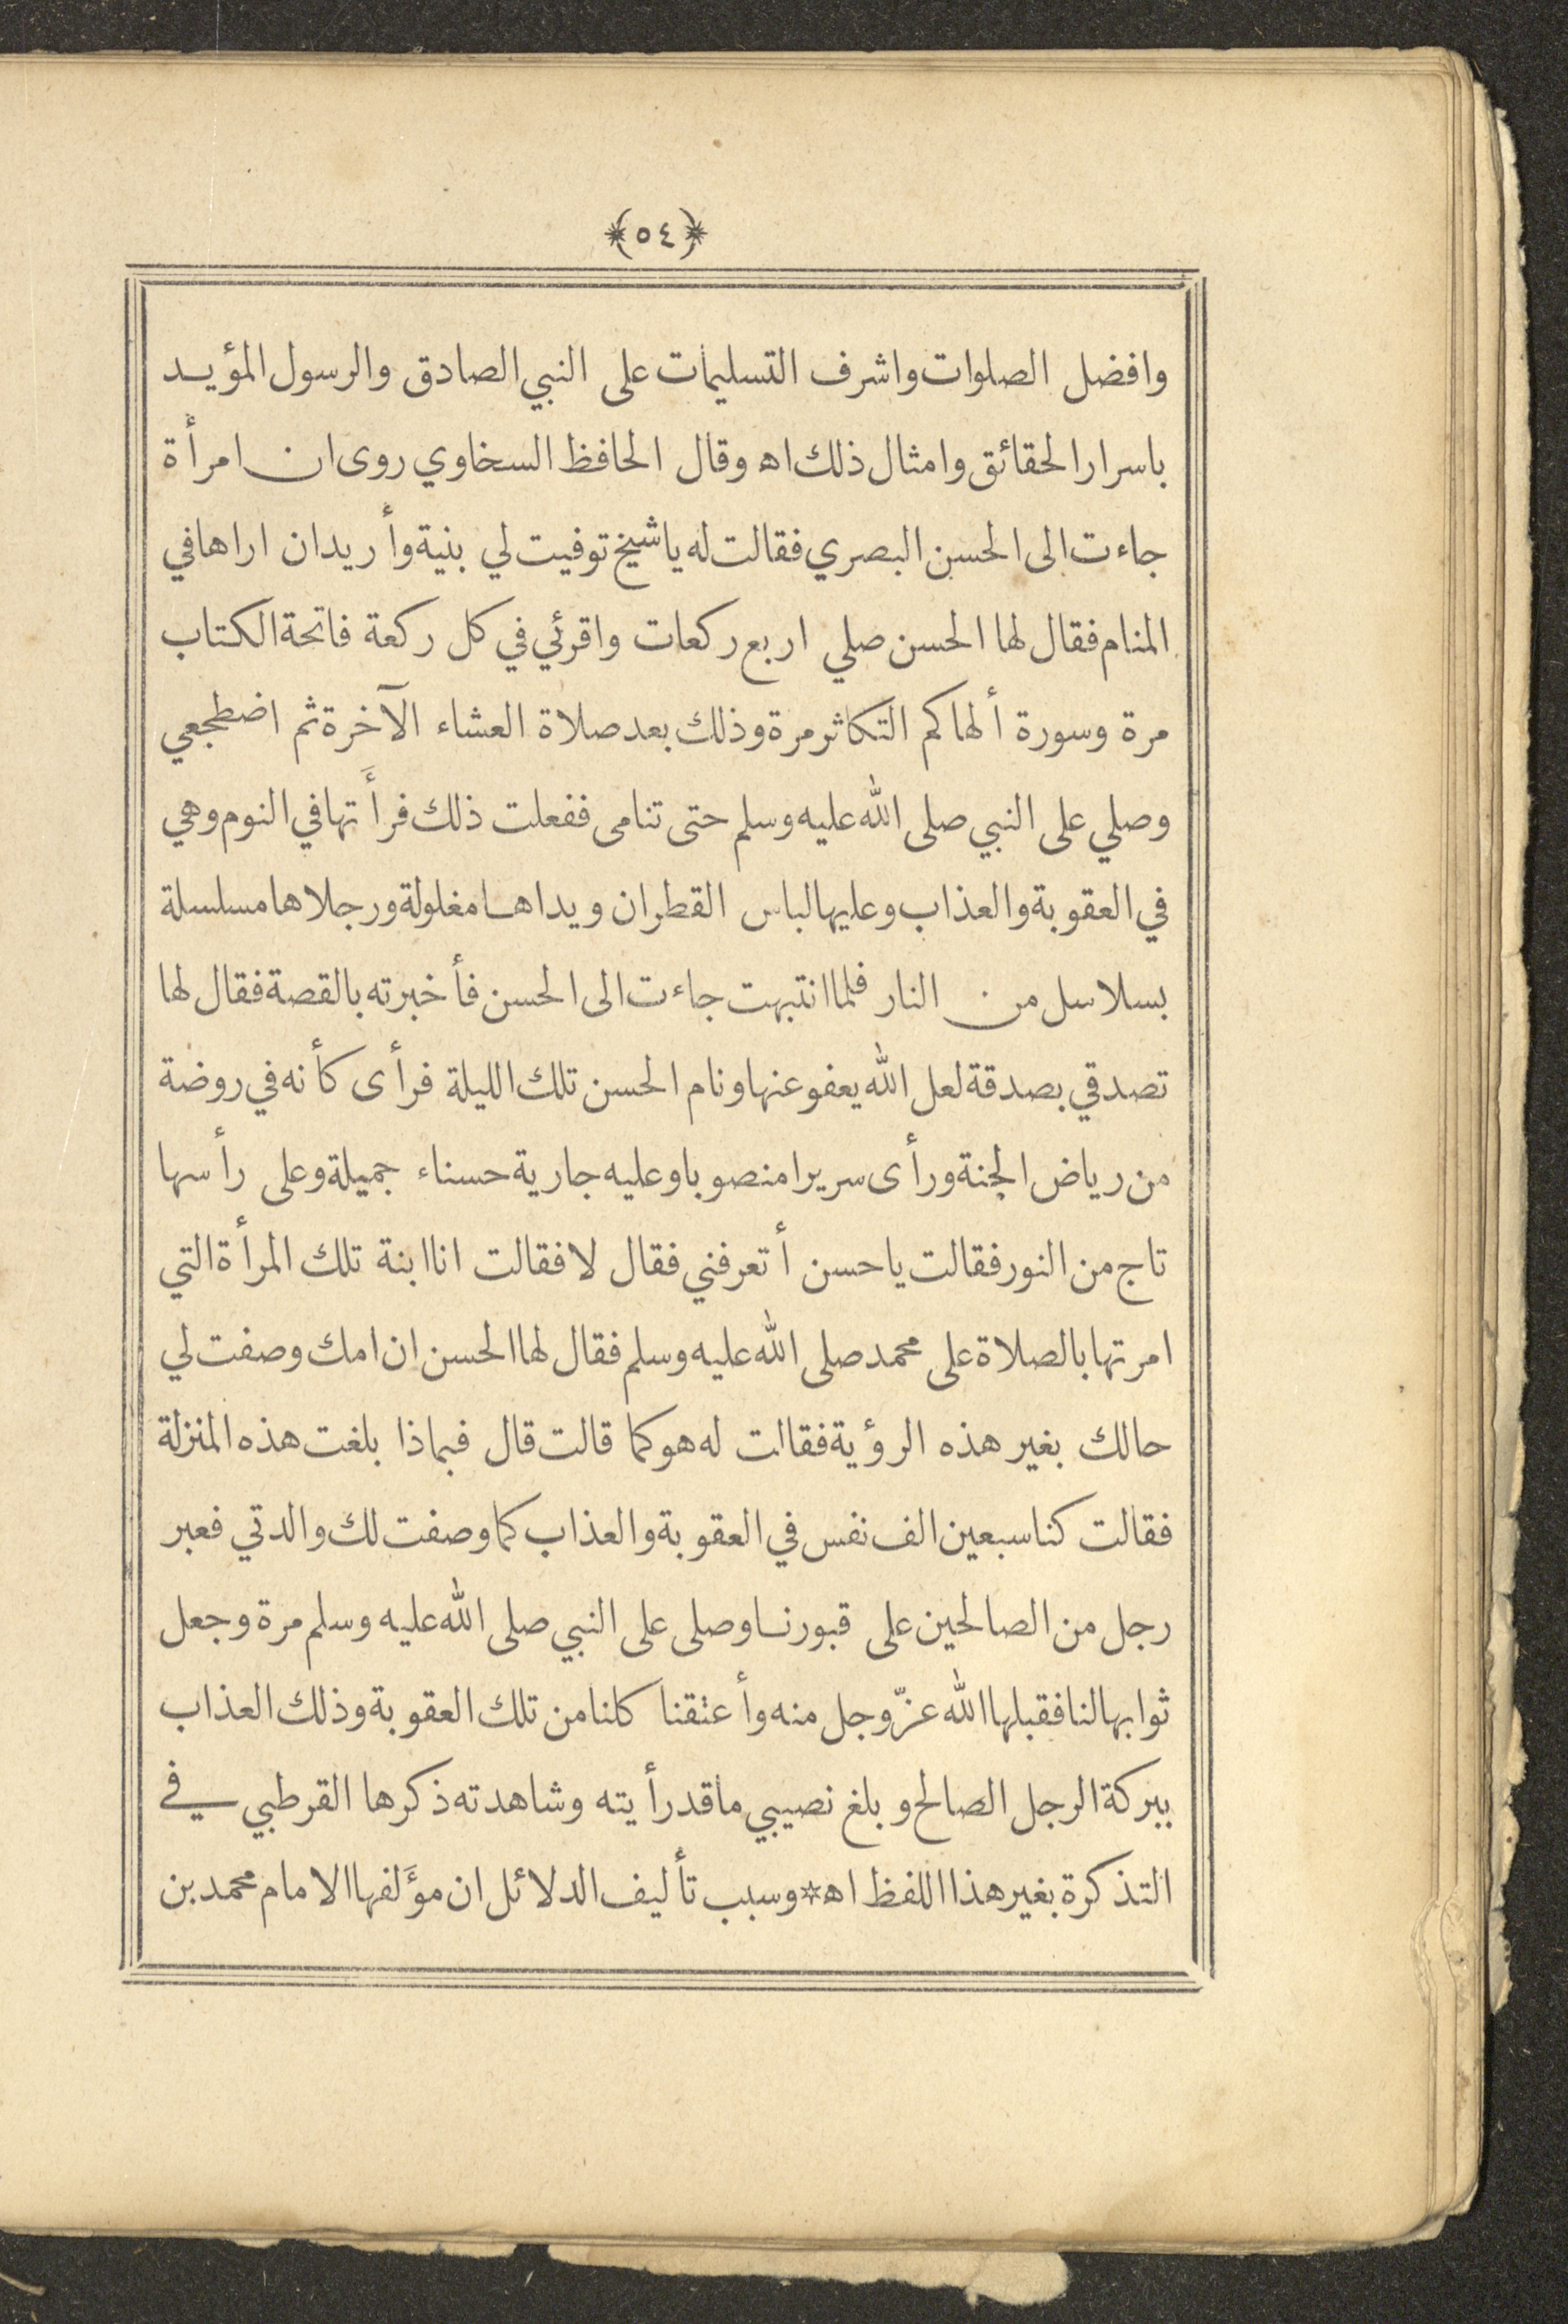 ﴿٥٤﴾
وافضل الصلوات واشرف التسليمات على النبي الصادق والرسول المؤيد
باسرار الحقائق وامثال ذلك اه وقال الحافظ السخاوي روى ان امرأة
جاءت الى الحسن البصري فقالت له يا شيخ توفيت لي بنية وأريد ان اراها في
المنام فقال لها الحسن صلي اربع ركعات واقرئي في كل ركعة فاتحة الكتاب
مرة وسورة ألهاكم التكاثر مرة وذلك بعد صلاة العشاء الآخرة ثم اضطجعي
وصلي على النبي صلى الله عليه وسلم حتى تنامى ففعلت ذلك فرأَتها في النوم وهي
في العقوبة والعذاب وعليها لباس القطران ويداها مغلولة ورجلاها مسلسلة
بسلاسل من النار فلما انتبهت جاءت الى الحسن فأخبرته بالقصة فقال لها
تصدقي بصدقة لعل الله يعفو عنها ونام الحسن تلك الليلة فرأى كأنه في روضة
من رياض الجنة ورأى سريرا منصوبا وعليه جارية حسناء جميلة وعلى رأسها
تاج من النور فقالت يا حسن أتعرفني فقال لا فقالت انا ابنة تلك المرأة التي
امرتها بالصلاة على محمد صلى الله عليه وسلم فقال لها الحسن ان امك وصفت لي
حالك بغير هذه الرؤية فقالت له هو كما قالت قال فبماذا بلغت هذه المنزلة
فقالت كنا سبعين الف نفس في العقوبة والعذاب كما وصفت لك والدتي فعبر
رجل من الصالحين على قبورنا وصلى على النبي صلى الله عليه وسلم مرة وجعل
ثوابها لنا فقبلها الله عزّ وجل منه وأعتقنا كلنا من تلك العقوبة وذلك العذاب
ببركة الرجل الصالح وبلغ نصيبي ما قد رأيته وشاهدته ذكرها القرطبي في
التذكرة بغير هذا اللفظ اه * وسبب تأليف الدلائل ان مؤَلفها الامام محمد بن